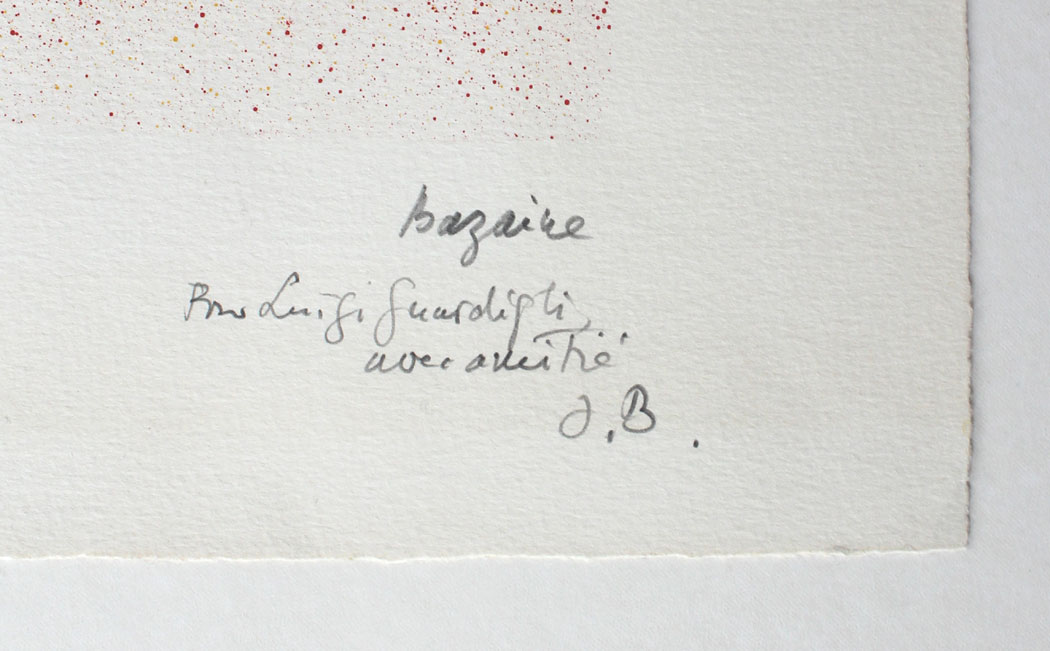 Bazaine
Pour Luigi Guardigli,
avec amitié
J.B.